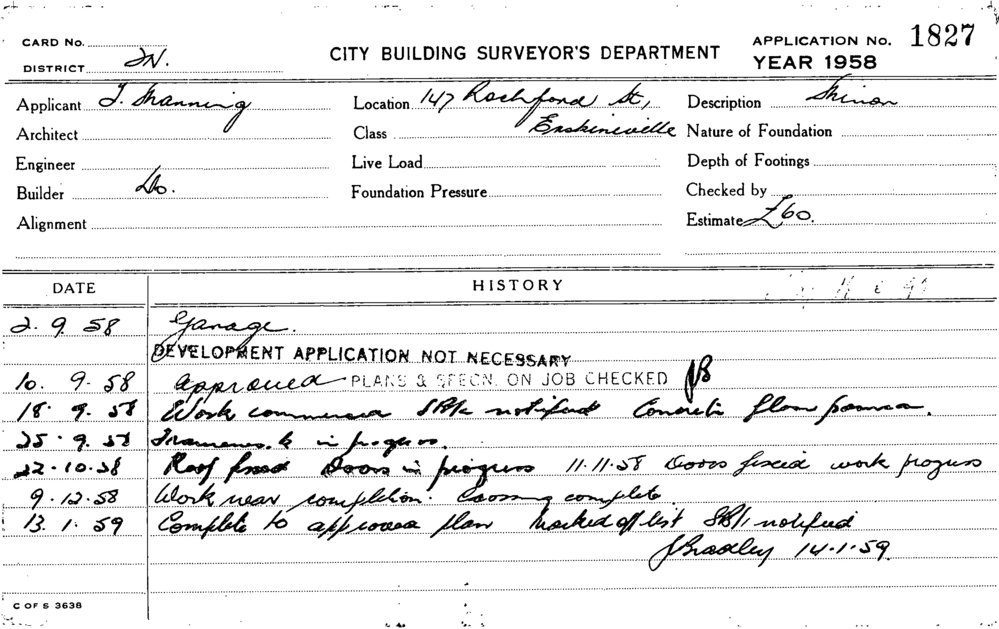 CARD No.
DISTRICT 2N.
CITY BUILDING SURVEYOR'S DEPARTMENT
APPLICATION No. 1827
YEAR 1958
Applicant J. Manning
Location 147 Rochford St,
Erskineville
Description Minor
Architect
Class
Nature of Foundation
Engineer
Live Load
Depth of Footings
Builder Do.
Foundation Pressure
Checked by
Alignment
Estimate £60.
DATE HISTORY
2. 9. 58 Garage.
DEVELOPMENT APPLICATION NOT NECESSARY
10. 9. 58 approved PLANS & SPECN. ON JOB CHECKED JB
18. 9. 58 Work commenced notified Concrete floor poured.
25. 9. 58 Framework in progress.
22. 10. 58 Roof fixed Doors in progress 11.11.58 Doors fixed work progress
9. 12. 58 Work near completion. Crossing complete.
13. 1. 59 Complete to approved plan Marked off list notified
JBradley 14.1.59.
C OF S 3638